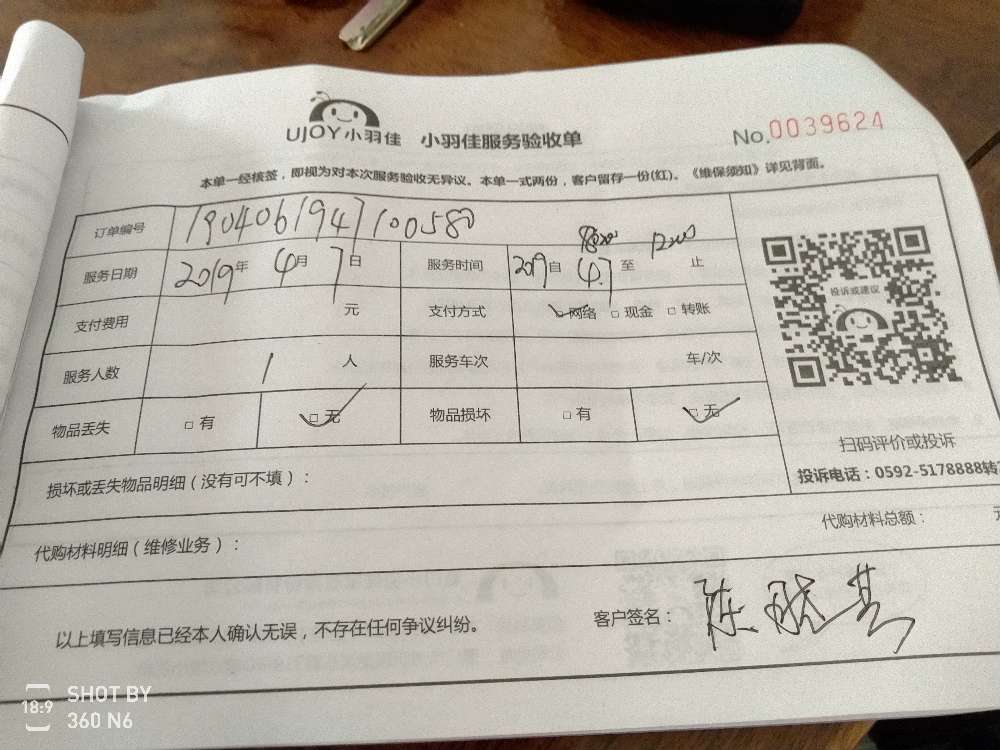 UJOY小羽佳 小羽佳服务验收单 No.0039624
本单一经核签，即视为对本次服务验收无异议。本单一式两份，客户留存一份(红)。《维保须知》详见背面。
订单编号 1904061947100580
服务日期 2019年 4月 7日 服务时间 2019自 4.7 至 12:00 止
支付费用 元 支付方式 □网络 □现金 □转账
投诉或建议
服务人数 1 人 服务车次 车/次
物品丢失 □有 □无 物品损坏 □有 □无
扫码评价或投诉
损坏或丢失物品明细（没有可不填）：
投诉电话：0592-5178888转
代购材料明细（维修业务）：
代购材料总额： 元
以上填写信息已经本人确认无误，不存在任何争议纠纷。
客户签名： 陈
18:9 SHOT BY
360 N6